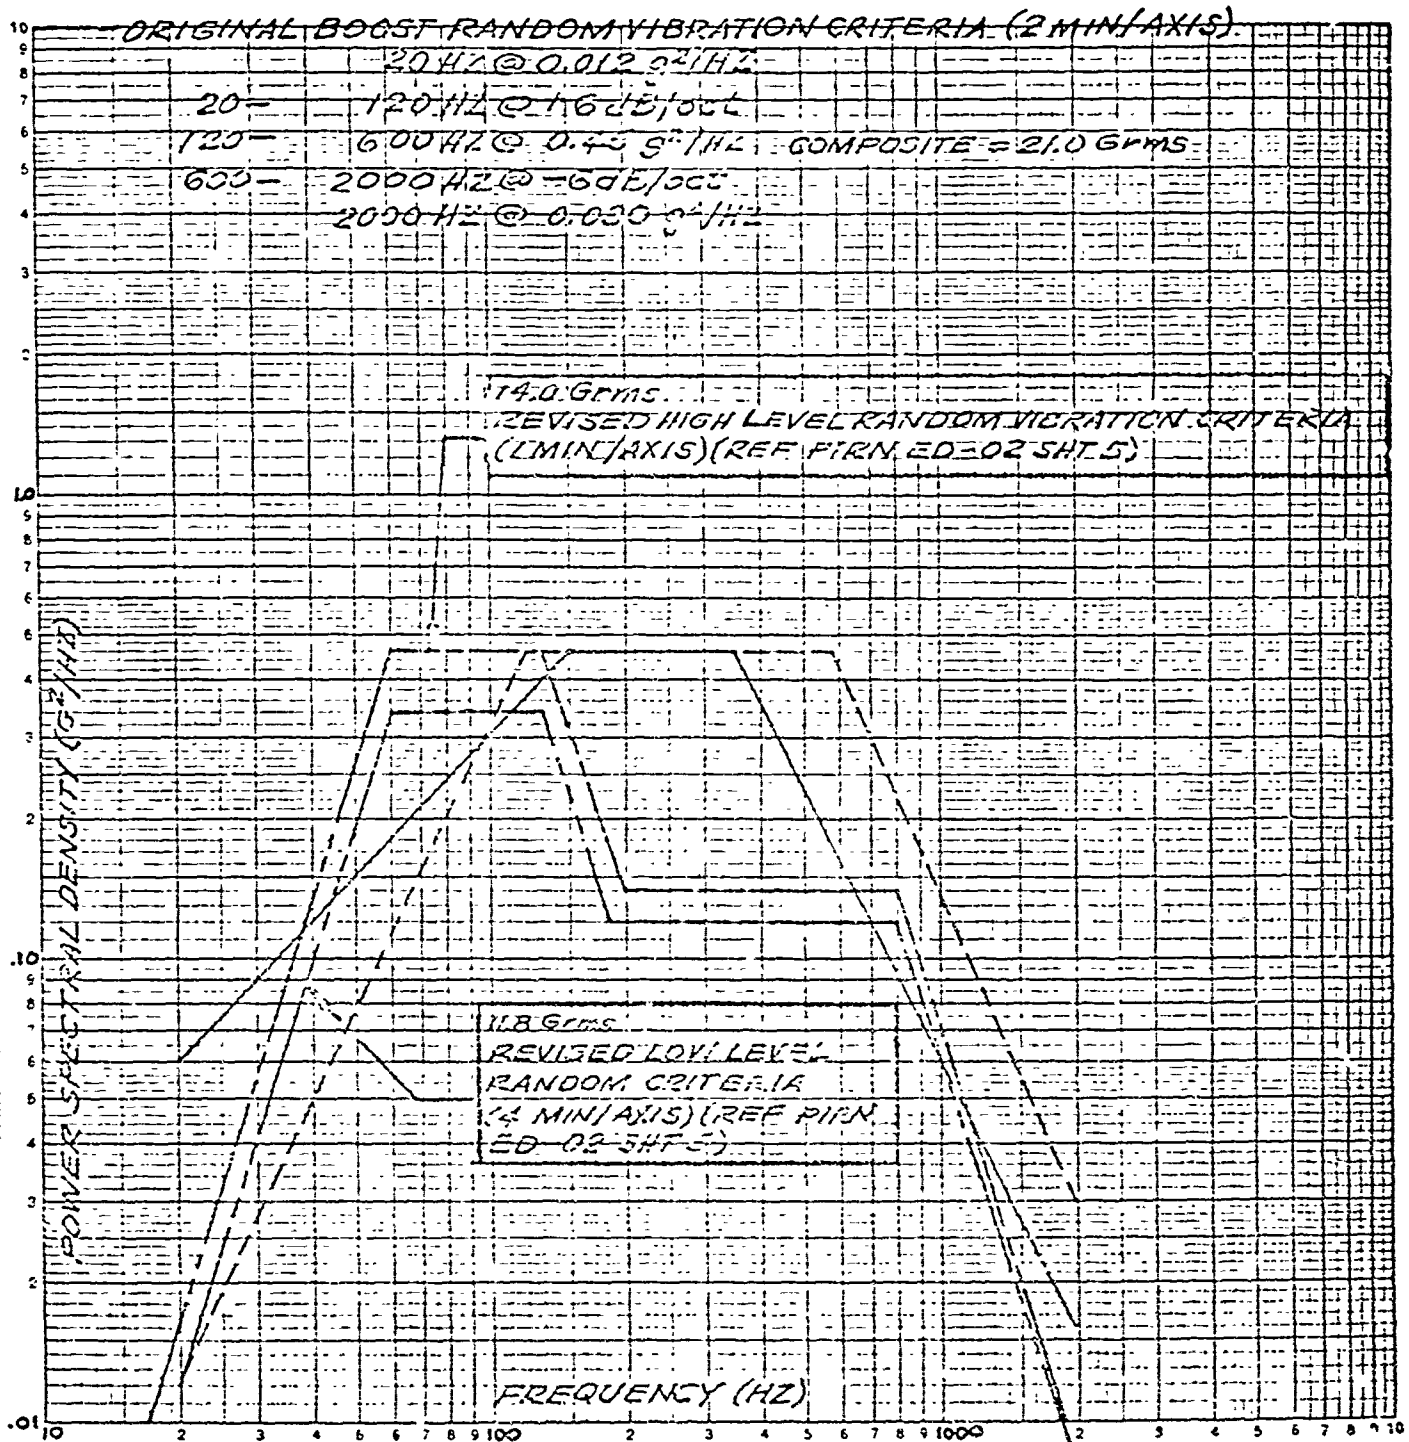 ORIGINAL BOOST RANDOM VIBRATION CRITERIA (2 MIN/AXIS)
20 HZ @ 0.012 g²/HZ
20- 120 HZ @ +6dB/oct
120- 600 HZ @ 0.45 g²/HZ COMPOSITE = 21.0 Grms
600- 2000 HZ @ -6dB/oct
2000 HZ @ 0.030 g²/HZ
14.0 Grms
REVISED HIGH LEVEL RANDOM VIBRATION CRITERIA
(1 MIN/AXIS)(REF PIRN ED-02 SHT 5)
11.8 Grms
REVISED LOW LEVEL
RANDOM CRITERIA
(4 MIN/AXIS)(REF PIRN
ED-02 SHT 5)
POWER SPECTRAL DENSITY (G²/HZ)
FREQUENCY (HZ)
10
9
8
7
6
5
4
3
1.0
9
8
7
6
5
4
3
2
.10
9
8
7
6
5
4
3
2
.01
10 2 3 4 5 6 7 8 9 100 2 3 4 5 6 7 8 9 1000 2 3 4 5 6 7 8 9 10